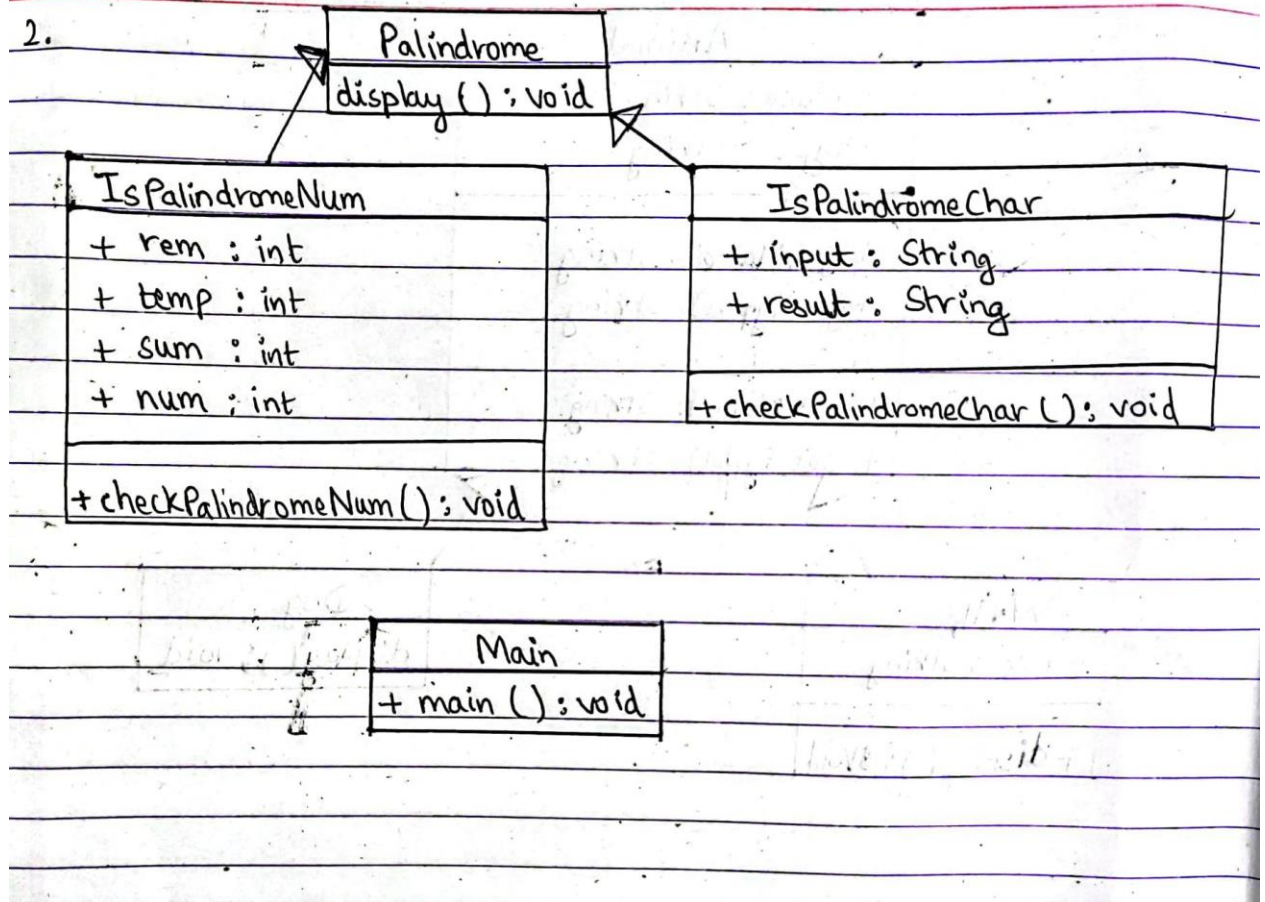 2.
Palindrome
display () : void
IsPalindromeNum
+ rem : int
+ temp : int
+ sum : int
+ num : int
+ checkPalindromeNum () : void
IsPalindromeChar
+ input : String
+ result : String
+ checkPalindromeChar () : void
Main
+ main () : void